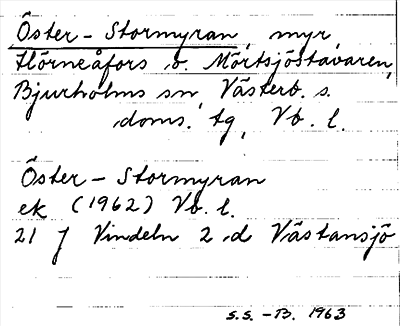 Öster-Stormyran, myr,
Hörneåfors o. Mörtsjöstavaren,
Bjurholms sn, Västerb. s.
doms. tg, Vb. l.
Öster-Stormyran
ek (1962) Vb. l.
21 J Vindeln 2 d Västansjö
S.S. -B. 1963